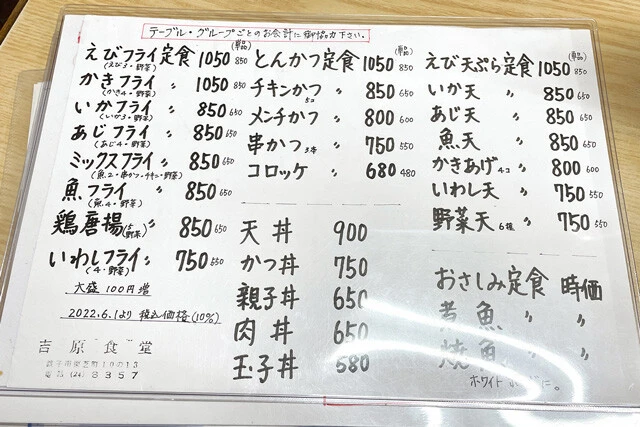 テーブル・グループごとのお会計に御協力下さい。
(単品)
えびフライ定食 1050 850
(えび3・野菜)
かきフライ 〃 1050 850
(かき4・野菜)
いかフライ 〃 850 650
(いか3・野菜)
あじフライ 〃 850 650
(あじ4・野菜)
ミックスフライ 〃 850 650
(魚2・串かつ・チキン・野菜)
魚フライ 〃 850 650
(魚4・野菜)
鶏唐揚 〃 850 650
いわしフライ 〃 750 550
(4・野菜)
大盛 100円増
2022.6.1より 税込価格(10%)
吉原食堂
電話(24)3357
(単品)
とんかつ定食 1050 850
チキンかつ 〃 850 650
5コ
メンチかつ 〃 800 600
串かつ 3本 〃 750 550
コロッケ 〃 680 480
天丼 900
かつ丼 750
親子丼 650
肉丼 650
玉子丼 580
(単品)
えび天ぷら定食 1050 850
いか天 〃 850 650
あじ天 〃 850 650
魚天 〃 850 650
かきあげ 4コ 〃 800 600
いわし天 〃 750 550
野菜天 6種 〃 750 550
おさしみ定食 時価
煮魚 〃 〃
焼魚 〃 〃
ホワイト
に。